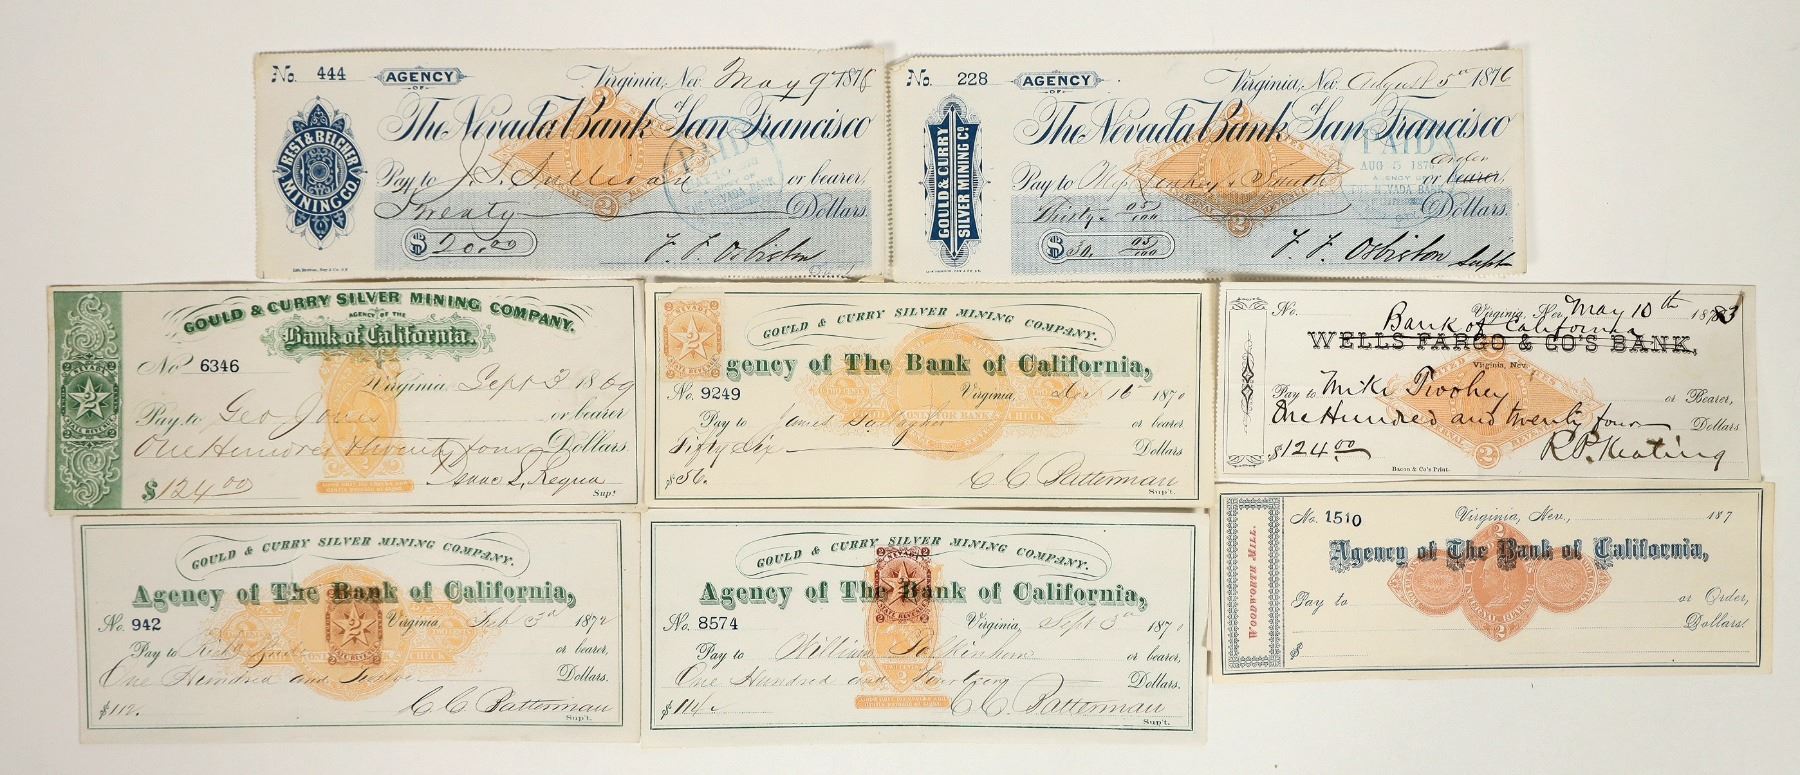 No. 444 AGENCY OF Virginia, Nev. May 9th 1876
The Nevada Bank of San Francisco
BEST & BELCHER MINING CO.
Pay to J. F. Sullivan or bearer,
Twenty Dollars.
$ 20.00 F. F. Osbiston
PAID
No. 228 AGENCY OF Virginia, Nev. August 5th 1876
The Nevada Bank of San Francisco
GOULD & CURRY SILVER MINING Co.
PAID AUG 5 187 AGENCY OF NEVADA BANK
Pay to or bearer,
Thirty 05/100 Dollars.
$ 30. 05/100 F. F. Osbiston Supt
GOULD & CURRY SILVER MINING COMPANY.
AGENCY OF THE
Bank of California.
No 6346 Virginia, Sept 3 1869
Pay to Geo Jones or bearer
One Hundred & twenty four Dollars
$124.00 Isaac L. Requa Sup!
NEVADA 2 STATE REVENUE
GOULD & CURRY SILVER MINING COMPANY.
Agency of The Bank of California,
No. 9249 Virginia, 16 1870
Pay to James Gallagher or bearer
Fifty Six Dollars
$56. C C Batterman Sup't.
No. Virginia, Nev. May 10th 1873
Bank of California
WELLS FARGO & CO'S BANK,
Virginia, Nev.
Pay to Mike Toohey or Bearer,
One Hundred and twenty four Dollars
$124.00 R. P. Keating
Bacon & Co's Print.
GOULD & CURRY SILVER MINING COMPANY.
Agency of The Bank of California,
No. 942 Virginia, Feb 3rd 1872
Pay to or bearer,
One Hundred and Twelve Dollars.
$112. C C Batterman Sup't.
GOULD & CURRY SILVER MINING COMPANY.
NEVADA 2 STATE REVENUE
Agency of The Bank of California,
No. 8574 Virginia, Sept 3rd 1870
Pay to William or bearer,
One Hundred and Fourteen Dollars.
$114. C C Batterman Sup't.
WOODWORTH MILL.
No. 1510 Virginia, Nev., 187
Agency of The Bank of California,
Pay to or Order,
Dollars!
$